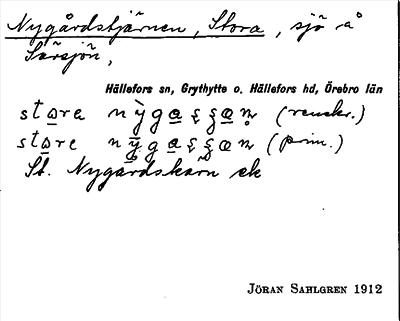 Nygårdstjärnen, Stora, sjö å
Särsjön,
Hällefors sn, Grythytte o. Hällefors hd, Örebro län
stɷra (renskr.)
stɷrɛ (prim.)
St. Nygårdskärn ek
JÖRAN SAHLGREN 1912